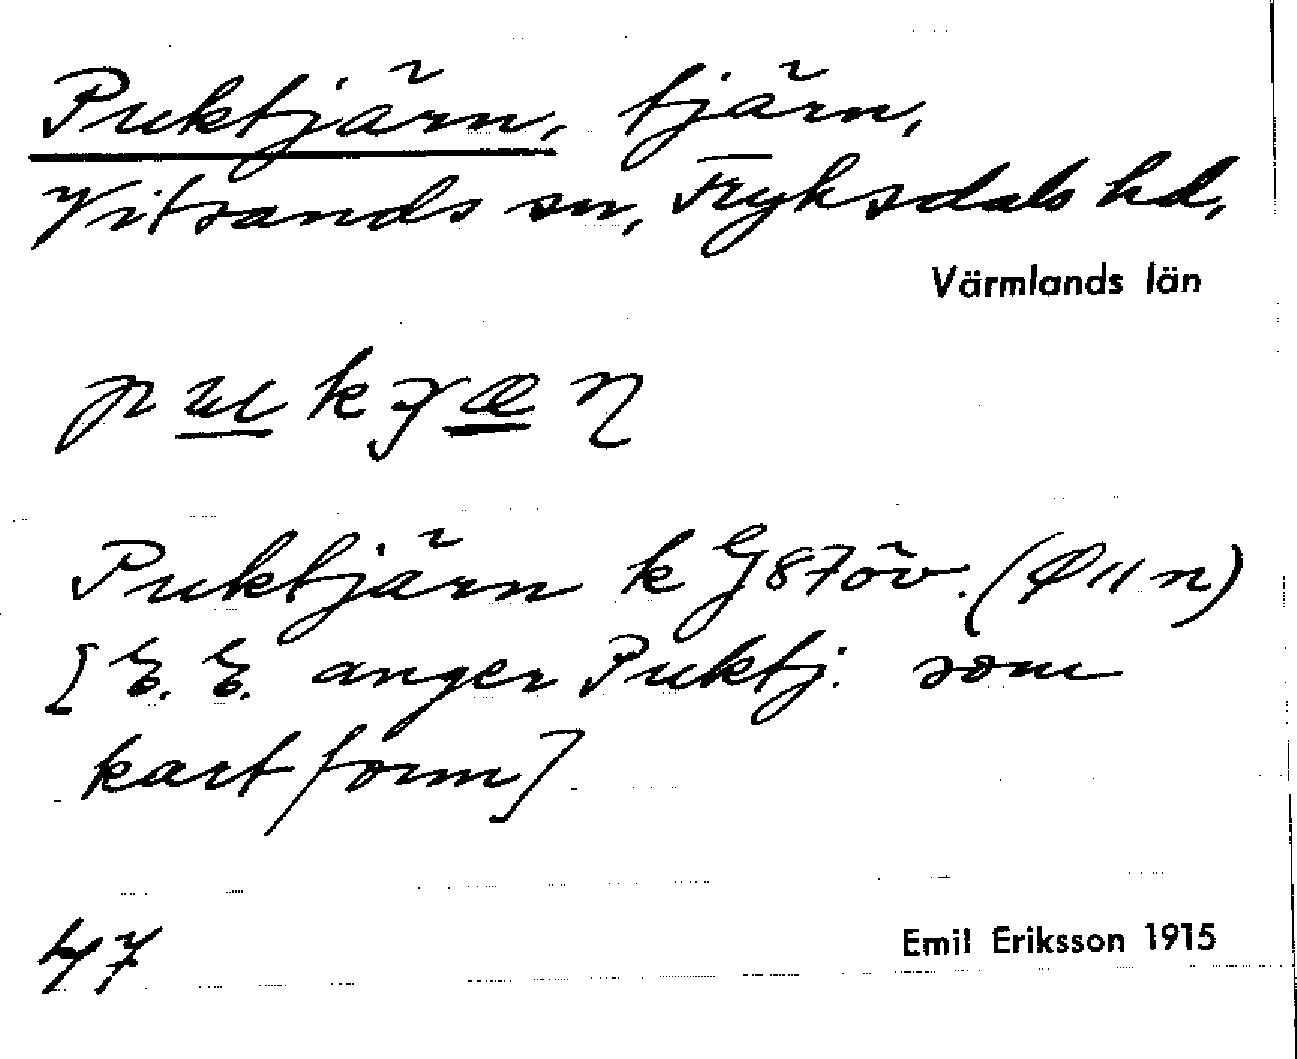 Puktjärn, tjärn,
Vitsands sn, Fryksdals hd,
Värmlands län
Puktjärn k G87öv. (Ø11n)
[E. E. anger Puktj. som
kartform]
47
Emil Eriksson 1915